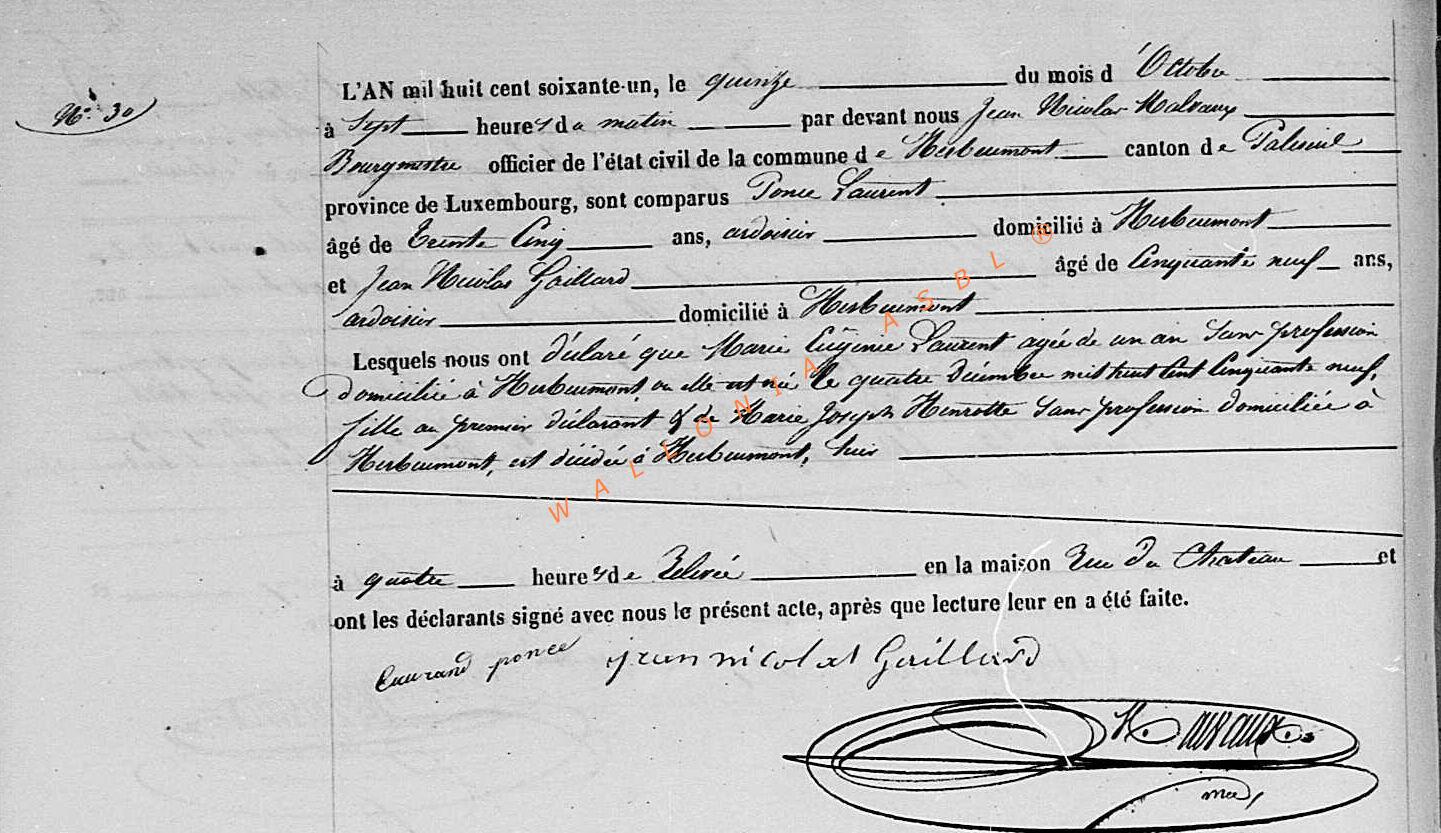 N° 30
L'AN mil huit cent soixante-un, le quinze du mois d'Octobre
à Sept heures du matin par devant nous Jean Nicolas Malvaux
Bourgmestre officier de l'état civil de la commune de Herbeumont canton de Paliseul
province de Luxembourg, sont comparus Ponce Laurent
âgé de Trente Cinq ans, ardoisier domicilié à Herbeumont
et Jean Nicolas Gaillard âgé de Cinquante neuf ans,
ardoisier domicilié à Herbeumont
Lesquels nous ont déclaré que Marie Eugénie Laurent agée de un an Sans profession
Domiciliée à Herbeumont, ou elle est née le quatre Décembre mil huit Cent Cinquante neuf,
fille au premier déclarant & de Marie Joseph Henrotte Sans profession Domiciliée à
Herbeumont, est décédée à Herbeumont, hier
à quatre heures de Relevée en la maison Rue Du Chateau et
ont les déclarants signé avec nous le présent acte, après que lecture leur en a été faite.
Laurand ponce jean nicolas Gaillard
WALLONIA ASBL ®